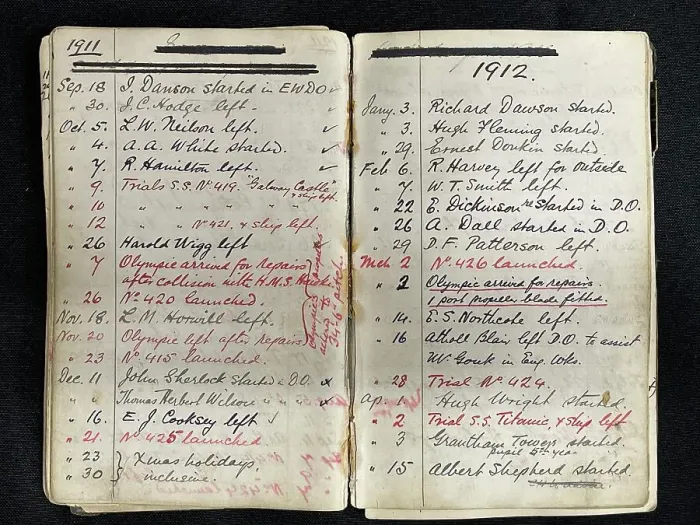 1911
Sep. 18 J. Dawson started in E W D O ✓
" 30. J. C. Hodge left.
Oct. 5. L. W. Neilson left. ✓
" 4. A. A. White started. ✓
" 7. R. Hamilton left. ✓
" 9. Trials S.S. No 419. "Galway Castle" & ship left.
" 10 " " " " "
" 12 " " No 421. & ship left.
" 26 Harold Wigg left
" 7 Olympic arrived for repairs
after collision with H.M.S. Hawke
" 26 No 420 launched.
Nov. 18. L. M. Horwill left.
Nov. 20 Olympic left after repairs
" 23 No 415 launched.
Olympic's propellers
34'-6" pitch
Dec. 11 John Sherlock started in D.O. x
" " Thomas Herbert Wilson " " " x
" 16. E. J. Cooksey left
" 21. No 425 launched
" 23 } Xmas holidays.
" 30 } inclusive.
1912.
Jany. 3. Richard Dawson started.
" 3. Hugh Fleming started.
" 29. Ernest Donkin started.
Feb 6. R. Harvey left for outside
" 7. W. T. Smith left.
" 22 E. Dickinson re-started in D.O.
" 26 A. Dall started in D.O.
" 29 D. F. Patterson left.
Mch 2 No 426 launched.
" 2 Olympic arrived for repairs.
1 port propeller blade fitted.
" 14. E. S. Northcote left.
" 16 Atholl Blair left D.O. to assist
Mr Gouk in Eng. Wks.
" 28 Trial No 424.
Ap. 1 Hugh Wright started.
" 2 Trial S.S. Titanic, & ship left
" 3 Grantham Towers started.
pupil 5th year
" 15 Albert Shepherd started.